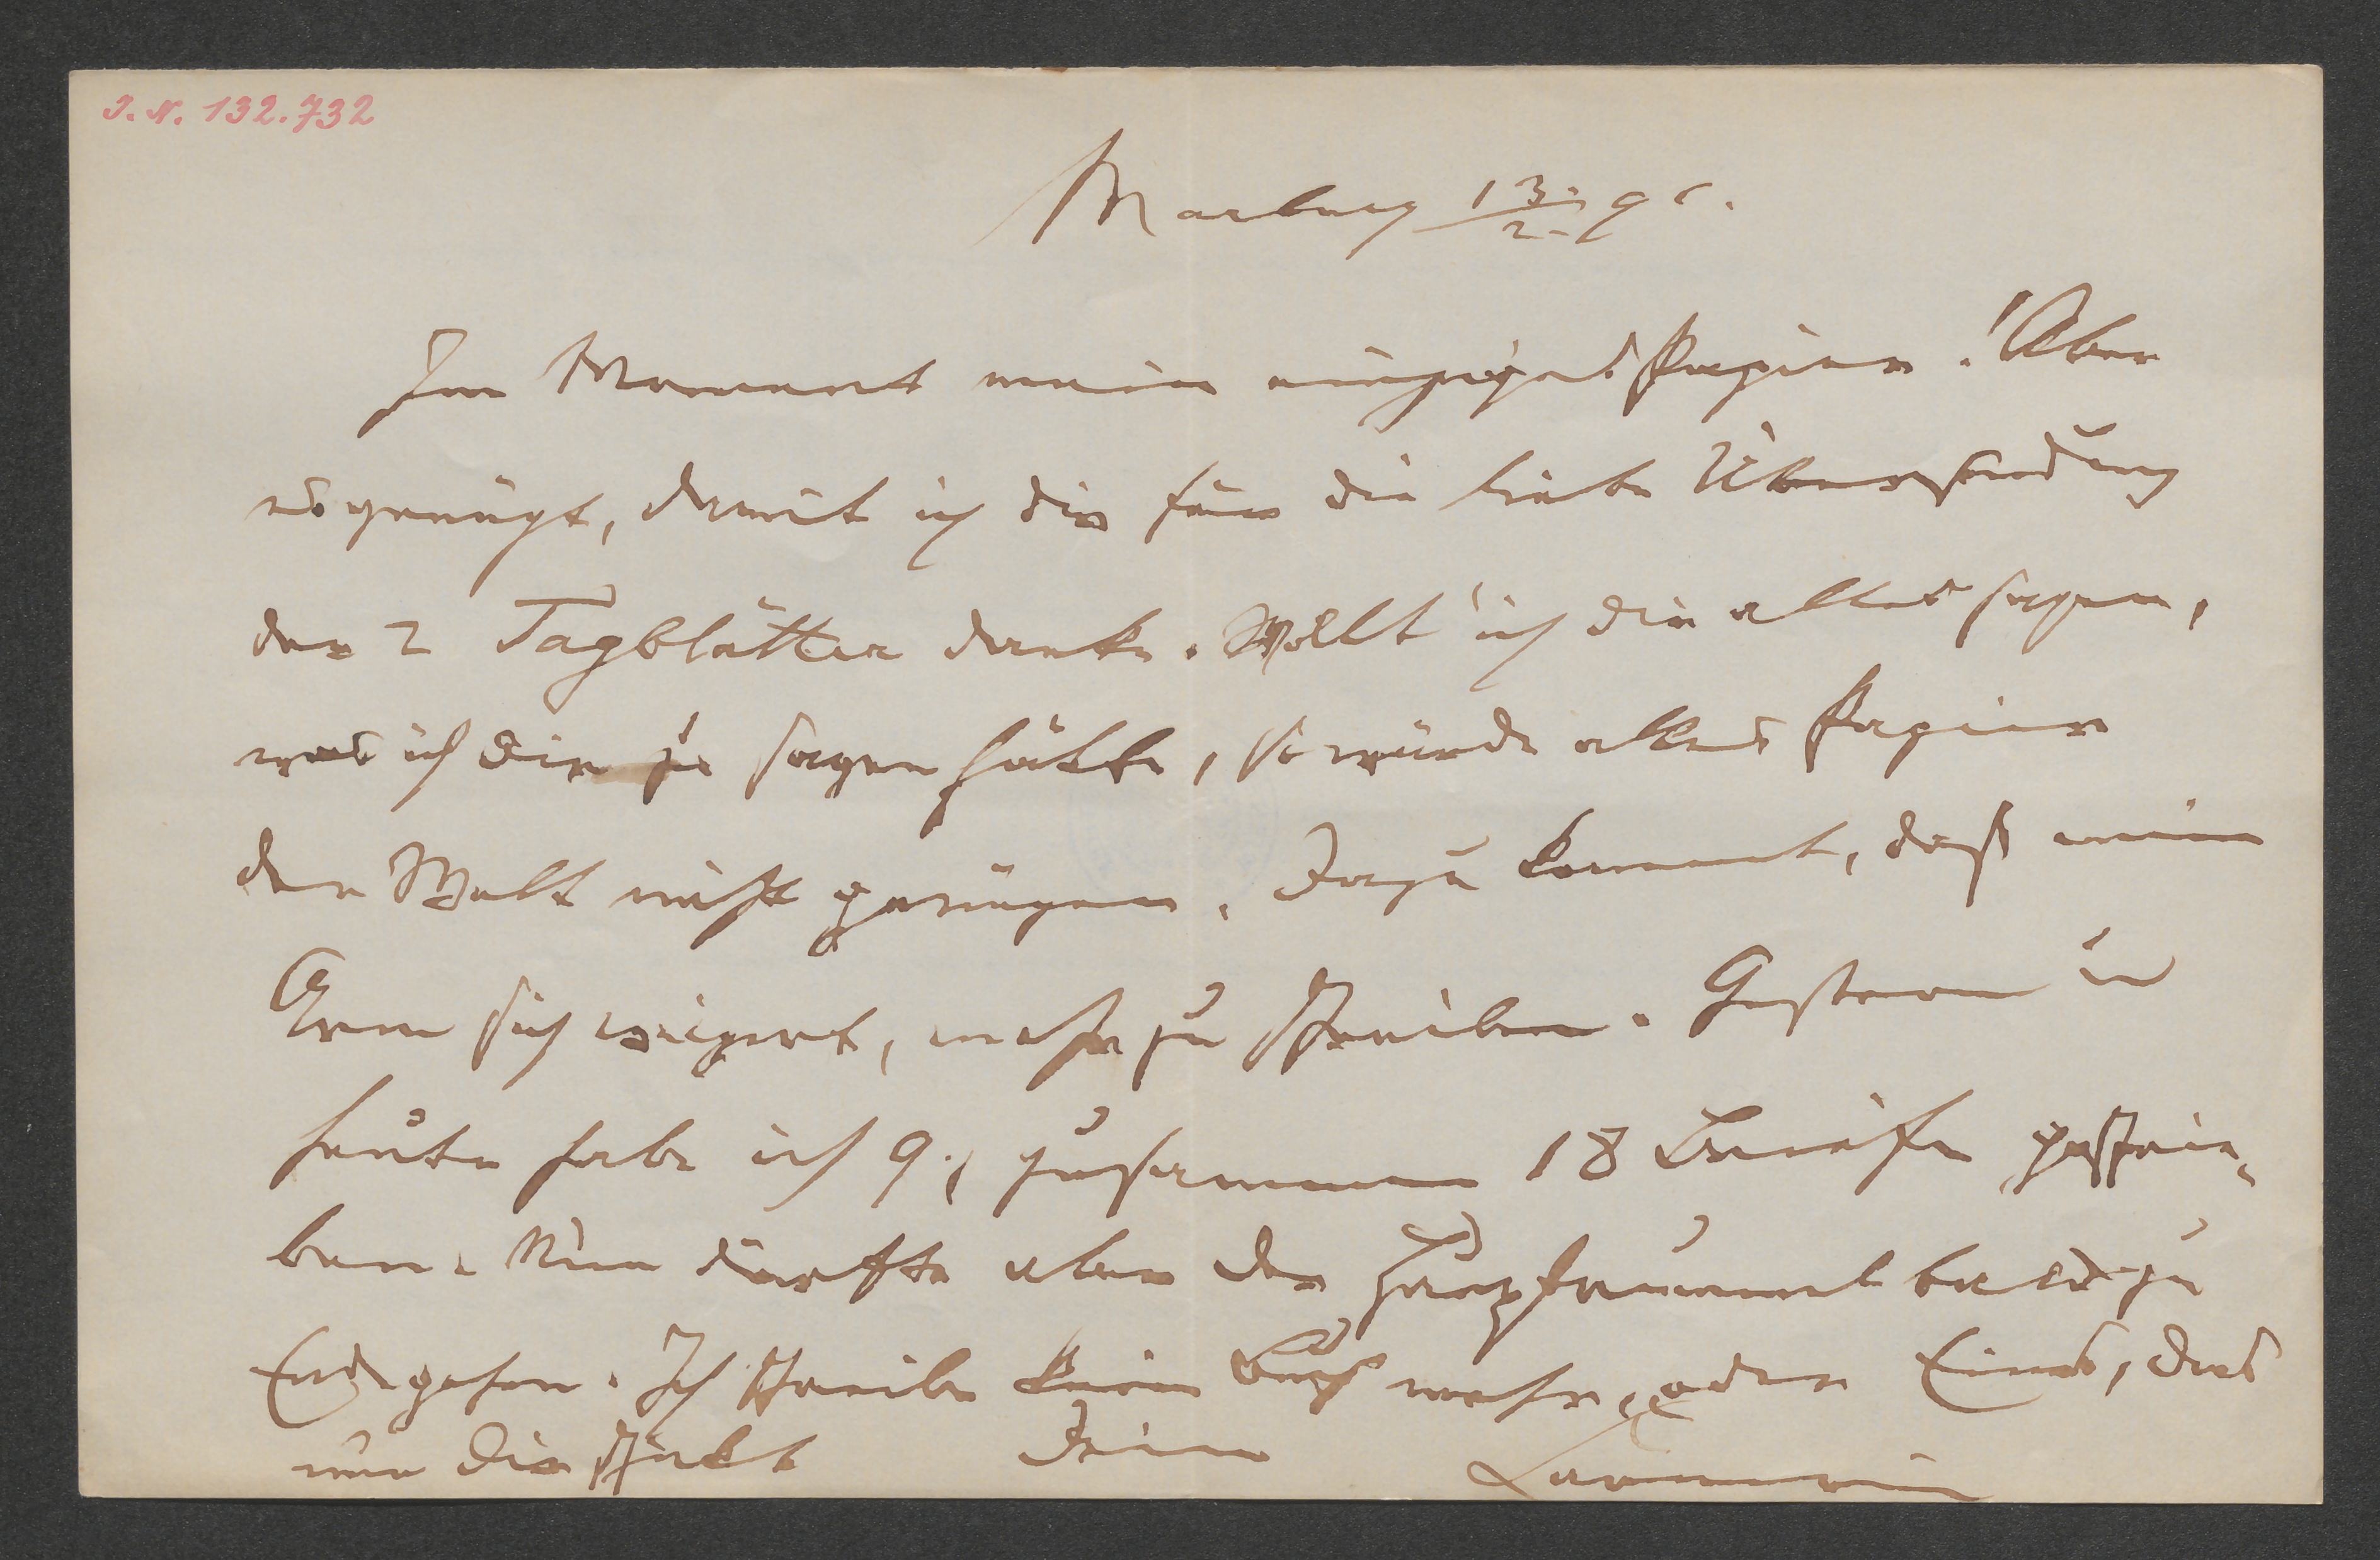 J. N. 132.732
Marburg 13./2. 96.
Im Moment mein einziges Papier! Aber
es genügt, damit ich dir für die liebe Übersendung
der 2 Tagblätter danke. Wollt' ich dir alles sagen,
was ich dir zu sagen hätte, so würde alles Papier
der Welt nicht genügen. Dazu kommt, daß mein
Arm sich weigert, mehr zu schreiben. Gestern u
heute habe ich 9, zusammen 18 Briefe geschrie-
ben. Nun dürfte aber der bald zu
Ende gehen. Ich schreibe kein Buch mehr, oder Eines, das
nur Dir schickt Dein